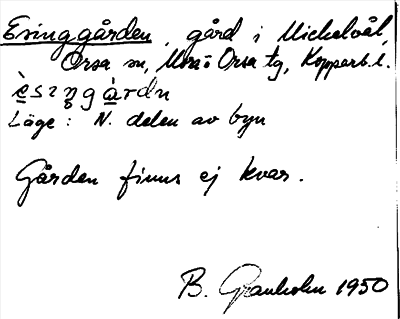 Esinggården, gård i Mickelvål,
Orsa sn, Mora o Orsa tg, Kopparb. l.
ὲsıŋgὰrdn
Läge: N. delen av byn
Gården finns ej kvar.
B. Granholm 1950